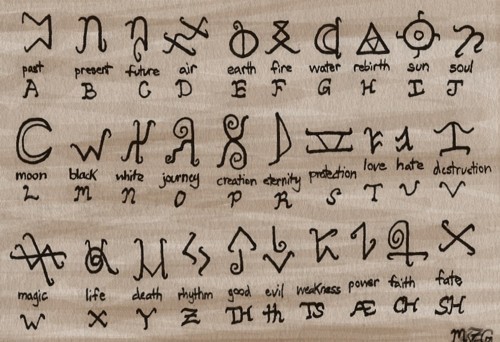 past present future air earth fire water rebirth sun soul
A B C D E F G H I J
moon black white journey creation eternity protection love hate destruction
L M N O P R S T U V
magic life death rhythm good evil weakness power faith fate
W X Y Z TH th TS Æ CH SH